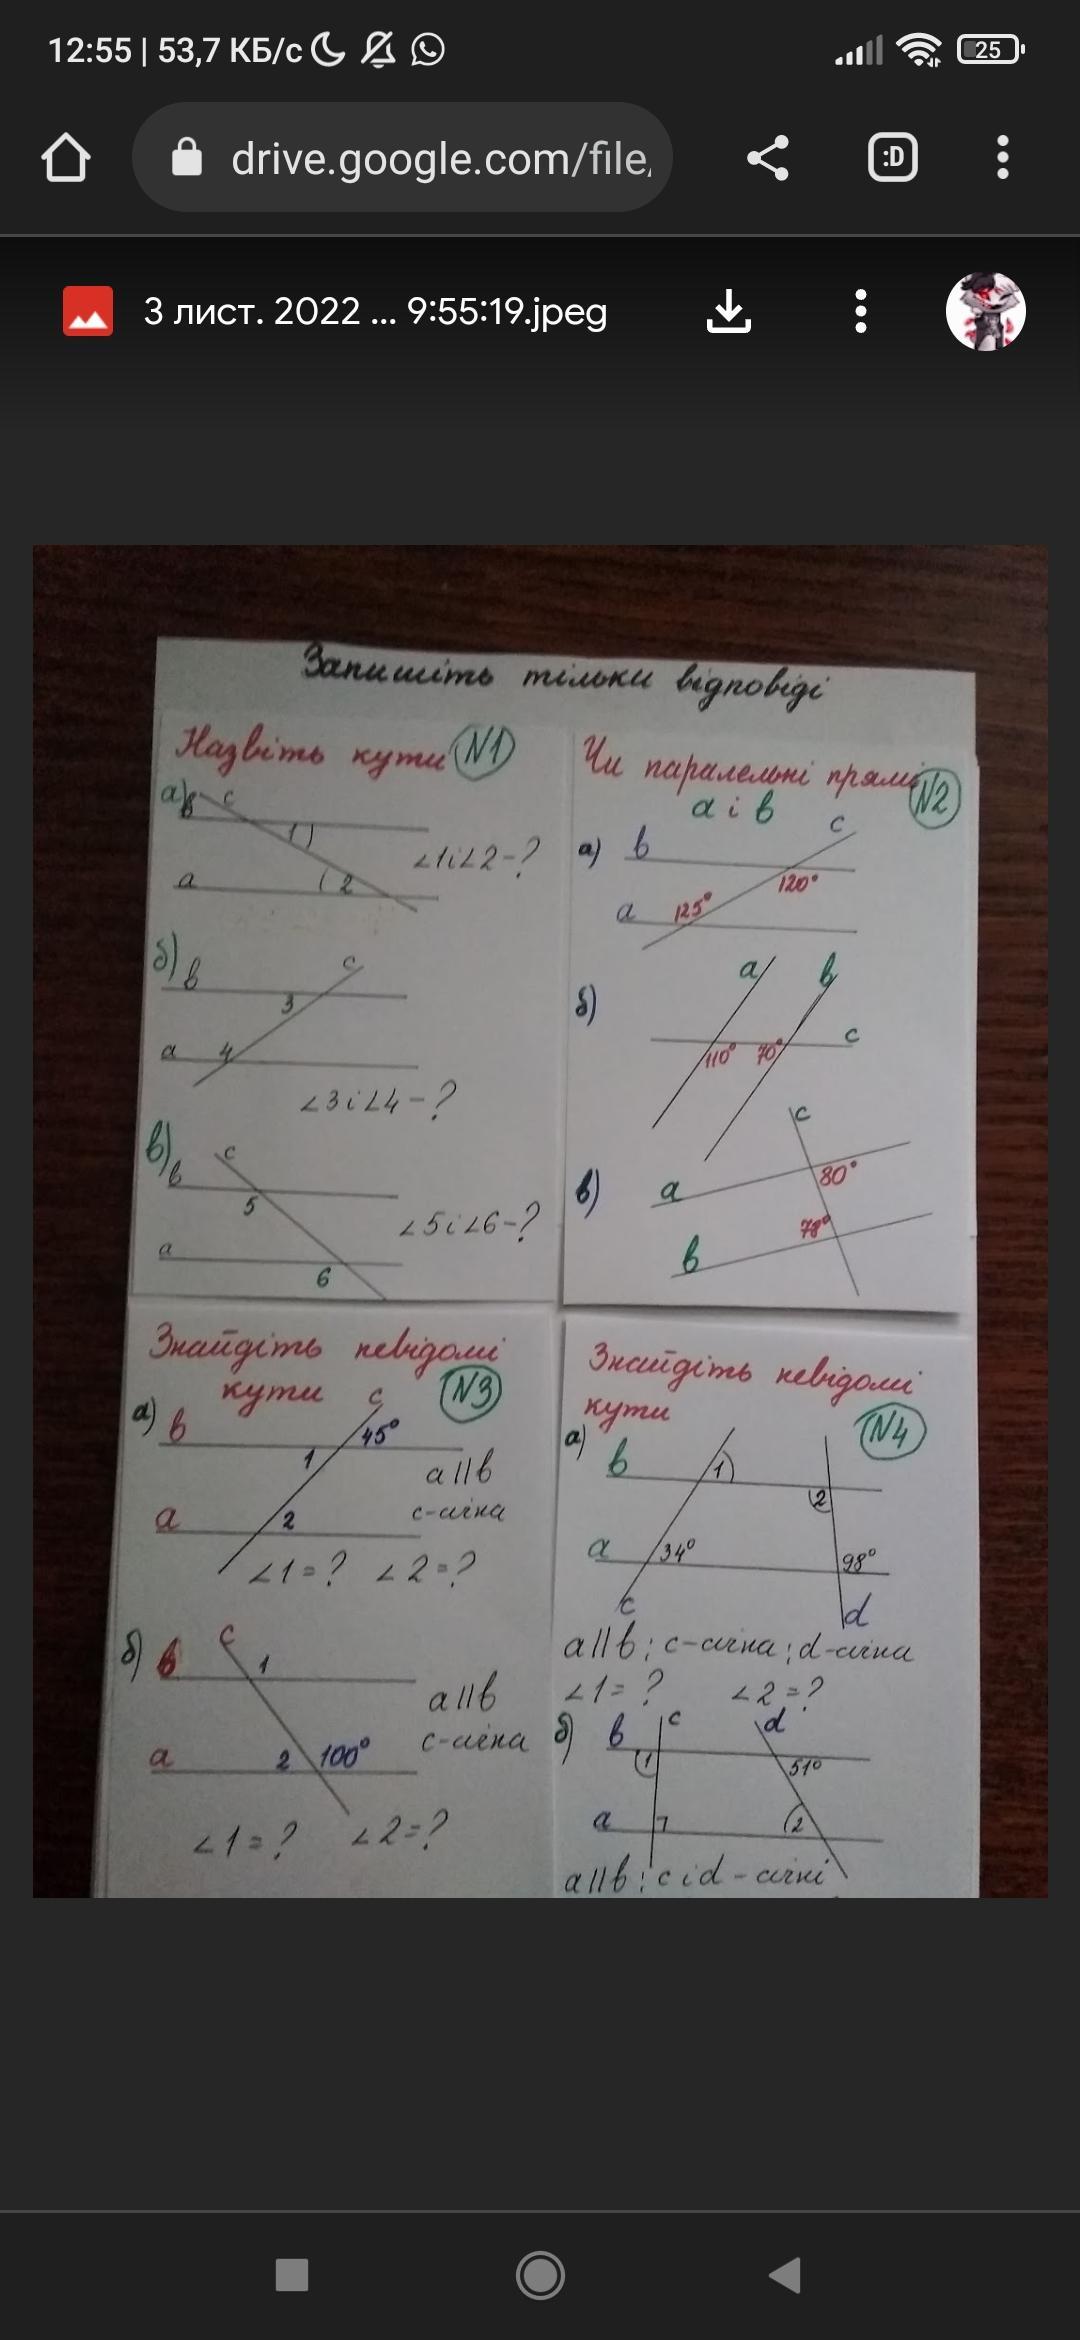 12:55 | 53,7 КБ/с
25
drive.google.com/file/
:D
3 лист. 2022 ... 9:55:19.jpeg
Запишіть тільки відповіді
Назвіть кути N1
а) в c
1
2
a
∠1 і ∠2 - ?
б) в c
3
a 4
∠3 і ∠4 - ?
в) в c
5
a
6
∠5 і ∠6 - ?
Чи паралельні прямі N2
a і в
а) в c
120°
a 125°
б) a в
c
110° 70°
в) c
a 80°
78°
в
Знайдіть невідомі
кути N3
а) в c 45°
1
a 2
a || в
c - січна
∠1 = ? ∠2 = ?
б) в c 1
a 2 100°
a || в
c - січна
∠1 = ? ∠2 = ?
Знайдіть невідомі
кути N4
а) в 1
2
a 34° 98°
c d
a || в ; c - січна ; d - січна
∠1 = ? ∠2 = ?
б) в c d
1 51°
a 2
a || в ; c і d - січні